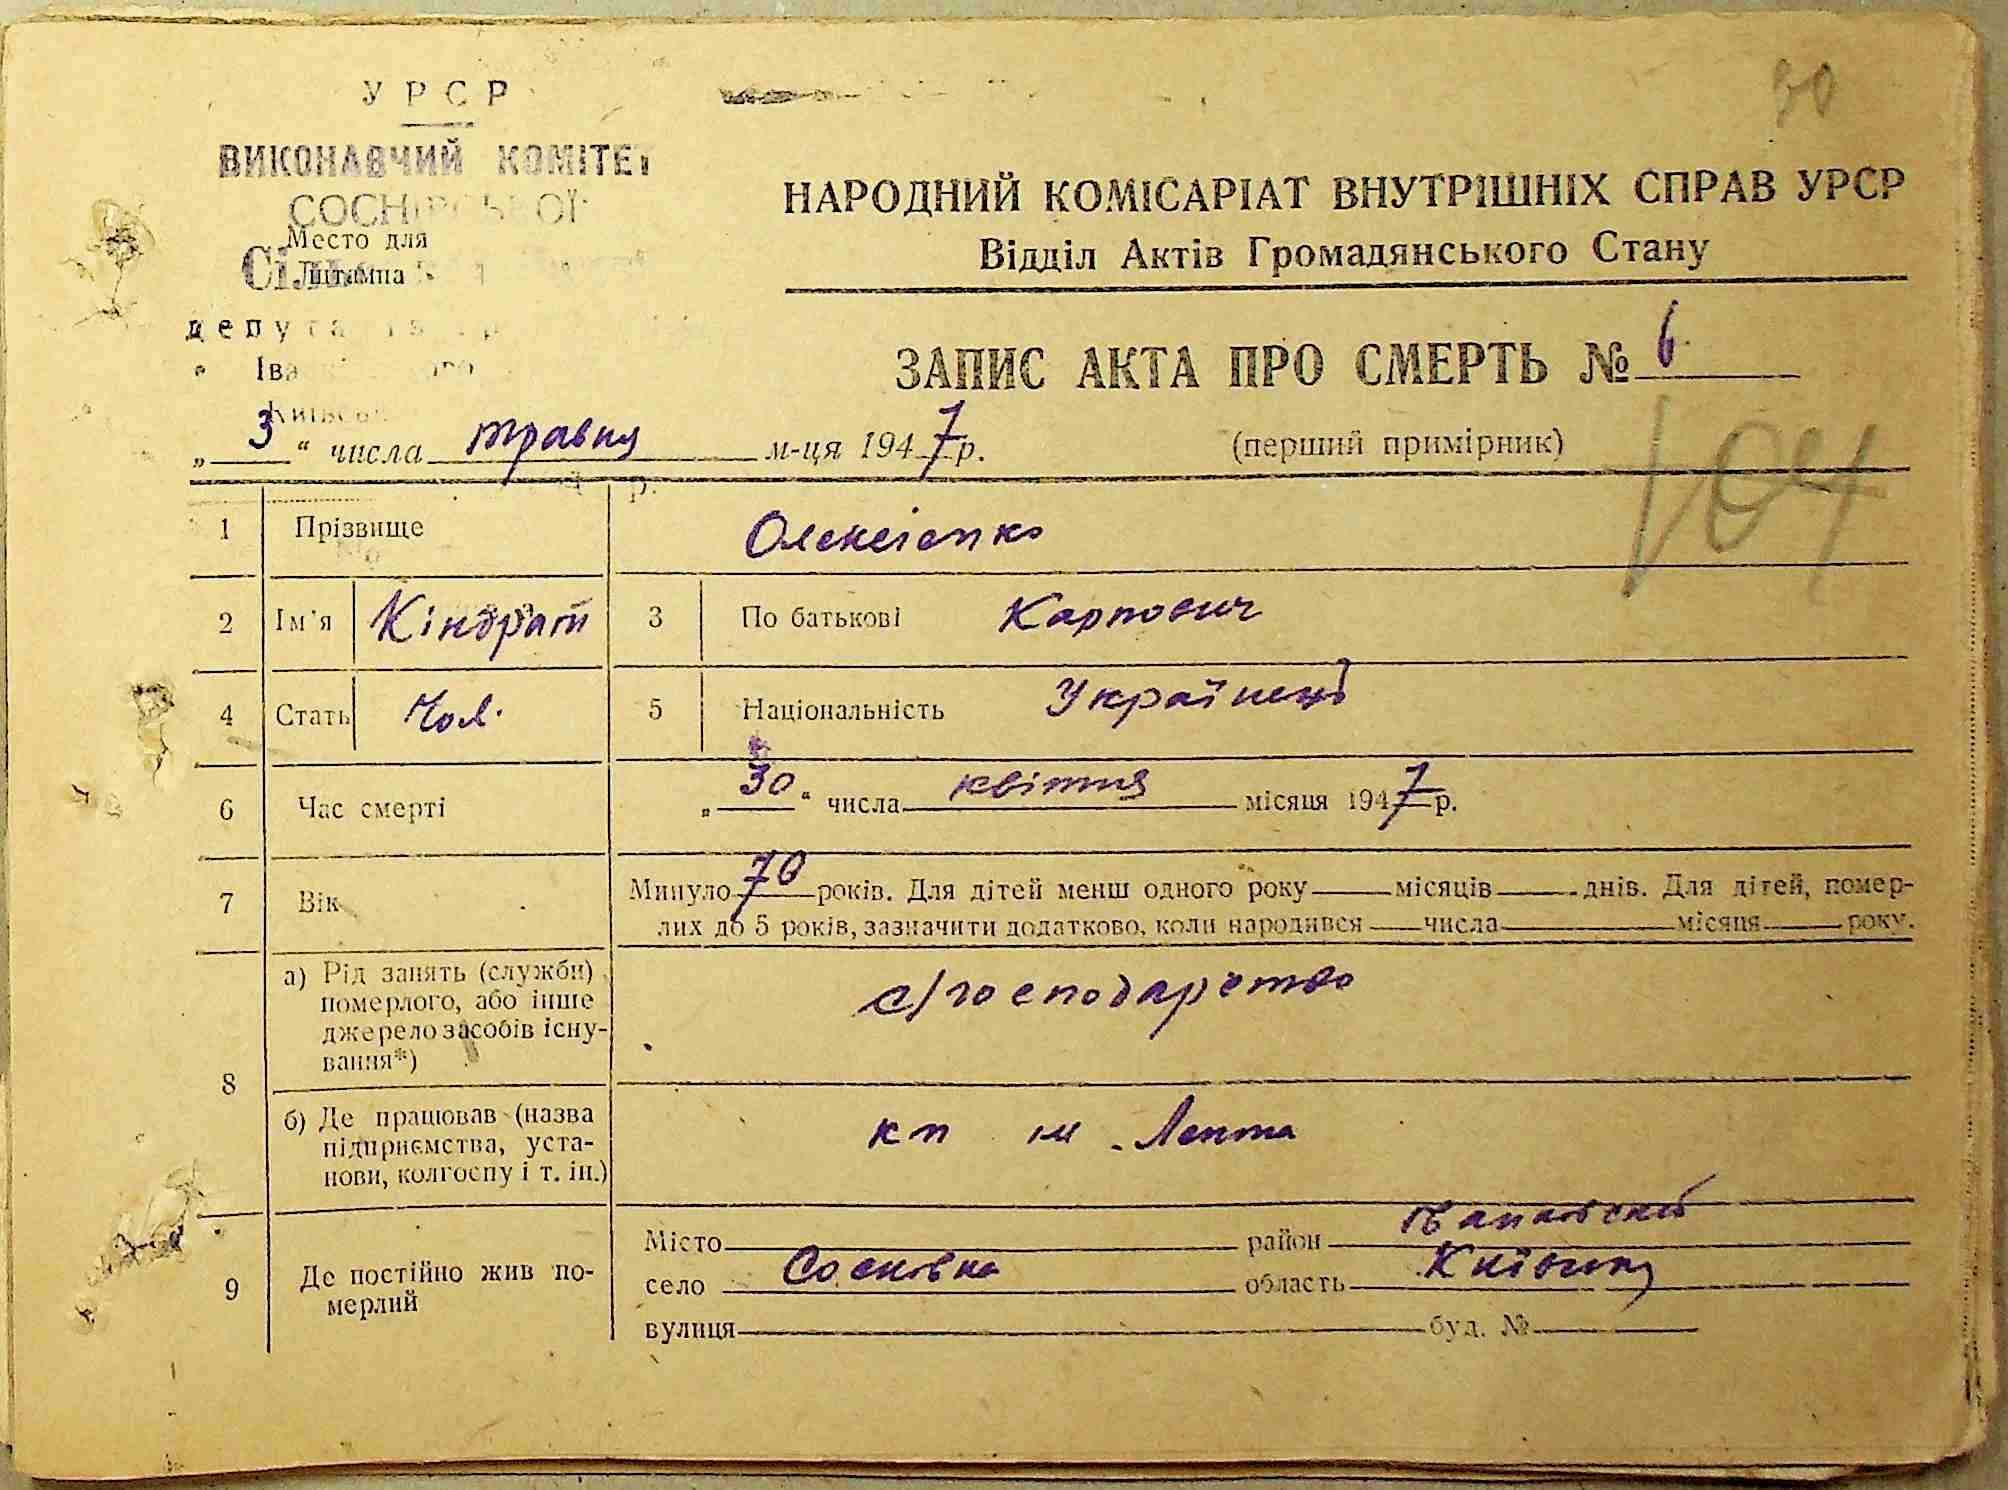 УРСР
90
ВИКОНАВЧИЙ КОМІТЕТ
Место для
штампа
НАРОДНИЙ КОМІСАРІАТ ВНУТРІШНІХ СПРАВ УРСР
Відділ Актів Громадянського Стану
ЗАПИС АКТА ПРО СМЕРТЬ № 6
„3“ числа травня м-ця 1947 р.
(перший примірник)
104
1 Прізвище Олексієнко
2 Ім'я Кіндрат 3 По батькові Карпович
4 Стать Чол. 5 Національність Українець
6 Час смерті „30“ числа квітня місяця 1947 р.
7 Вік Минуло 70 років. Для дітей менш одного року місяців днів. Для дітей, помер-
лих до 5 років, зазначити додатково, коли народився числа місяця року.
8 а) Рід занять (служби)
померлого, або інше
джерело засобів існу-
вання*)
с/господарство
б) Де працював (назва
підприємства, уста-
нови, колгоспу і т. ін.)
кп ім
9 Де постійно жив по-
мерлий
Місто район
село Соснівка область Київська
вулиця буд. №